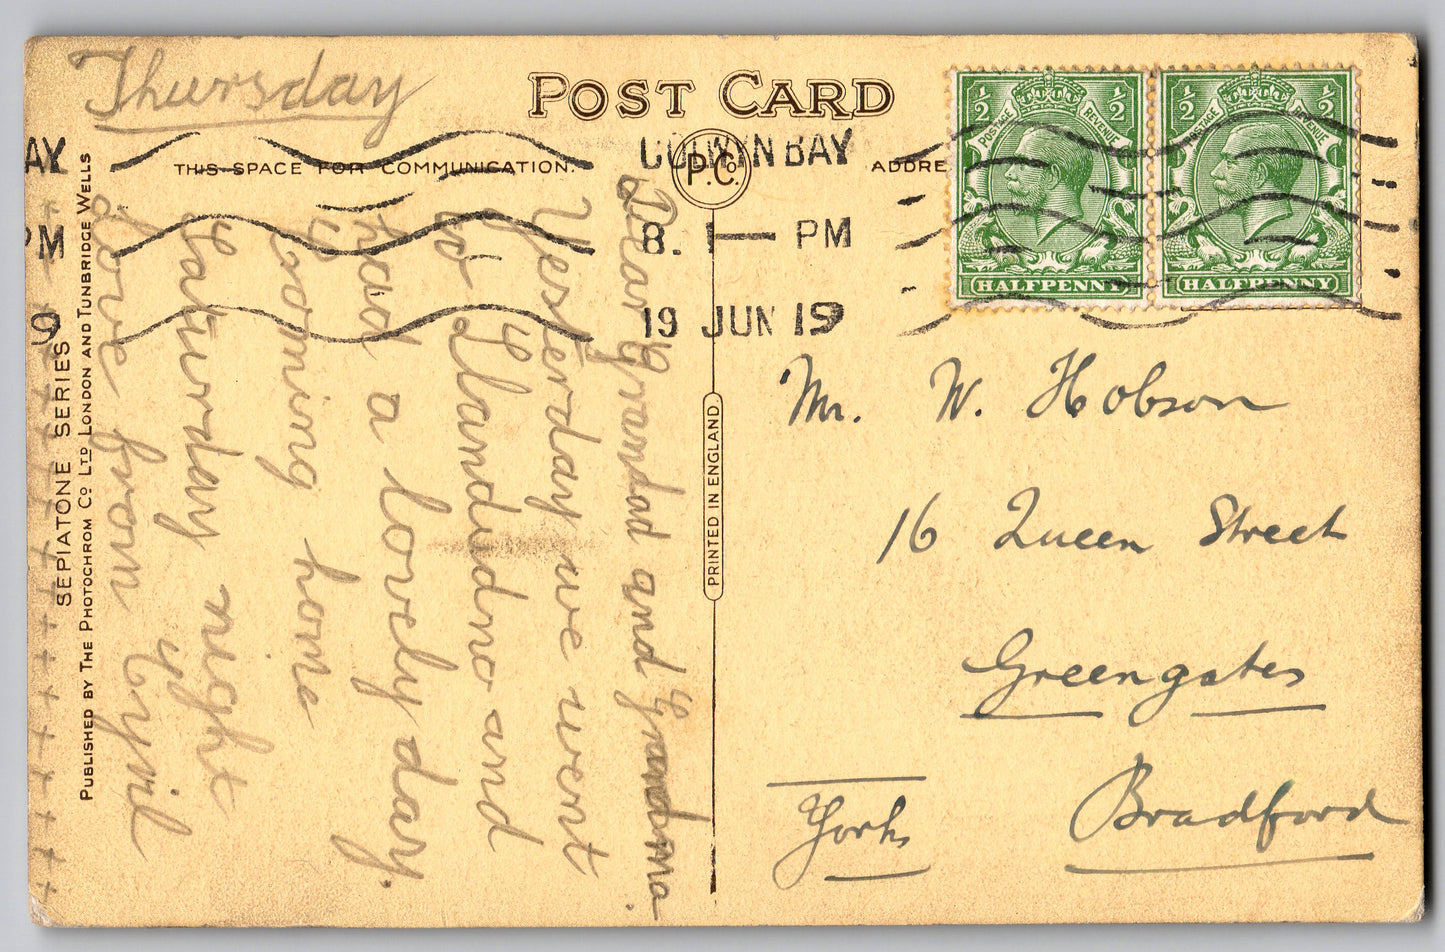 Thursday
POST CARD
THIS SPACE FOR COMMUNICATION.
ADDRE
P.C.º
COLWYN BAY
8. 1— PM
19 JUN 19
AY
PM
9
½ ½
POSTAGE REVENUE
HALFPENNY
½ ½
POSTAGE REVENUE
HALFPENNY
Dear Grandad and Grandma.
Yesterday we went
to Llandudno and
had a lovely day.
Coming home
Saturday night
Love from Cyril
+ + + + + + + + + + + + + + + + +
SEPIATONE SERIES
PUBLISHED BY THE PHOTOCHROM Co LTD LONDON AND TUNBRIDGE WELLS
PRINTED IN ENGLAND
Mr. W. Hobson
16 Queen Street
Greengates
Bradford
Yorks